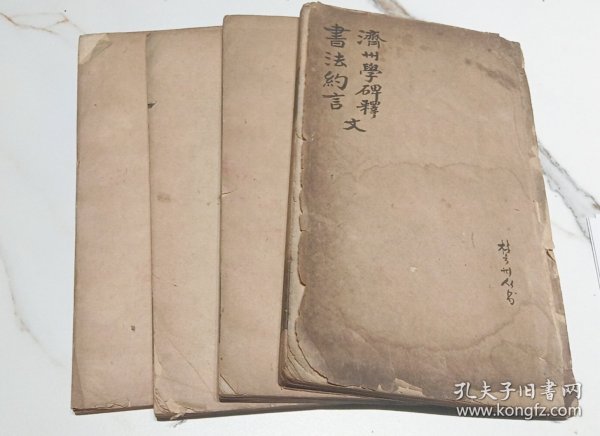 濟州學碑釋文
書法約言
孔夫子旧書网
www.kongfz.com